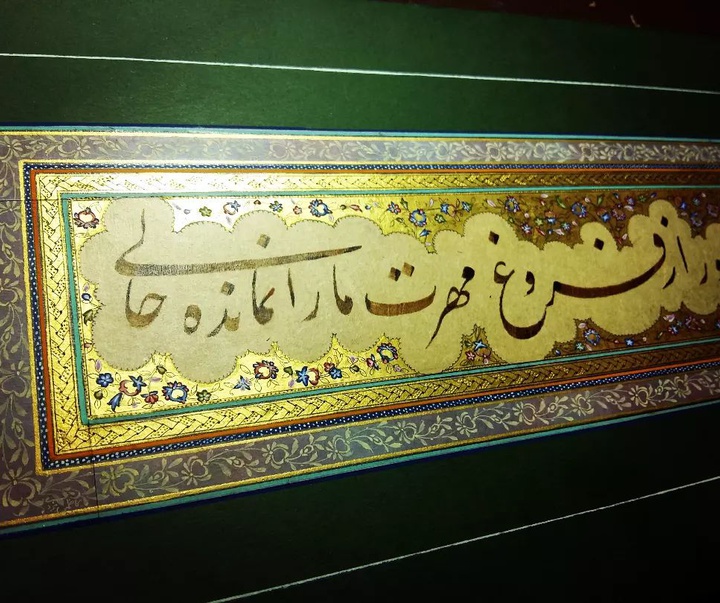 ور از فروغ مهرت ما را نمانده حالی